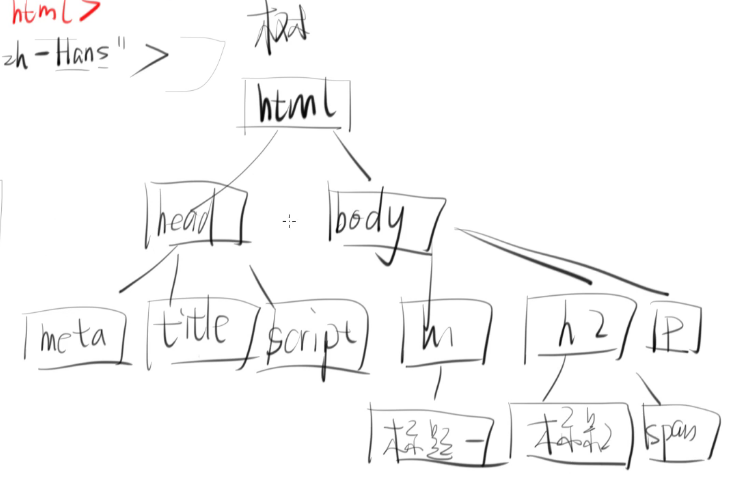 html>
zh-Hans">
树
html
head
body
meta
title
script
h1
h2
p
标题一
span